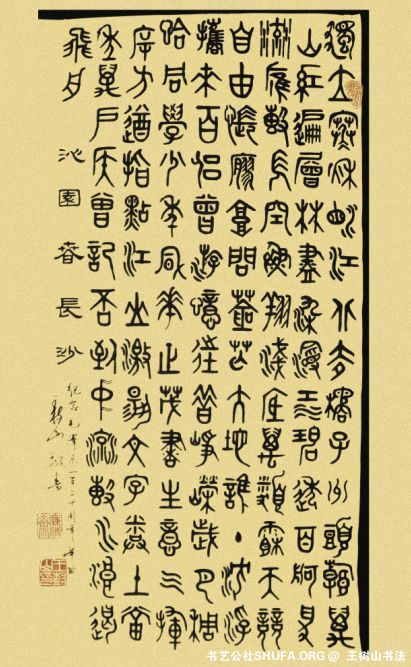 獨立寒秋湘江北去橘子洲頭看萬
山紅遍層林盡染漫江碧透百舸爭
流鷹擊長空魚翔淺底萬類霜天競
自由悵寥廓問蒼茫大地誰主沉浮
攜來百侶曾遊憶往昔崢嶸歲月稠
恰同學少年風華正茂書生意氣揮
斥方遒指點江山激揚文字糞土當
年萬戶侯曾記否到中流擊水浪遏
飛舟 沁園春長沙
書艺公社SHUFA.ORG @ 王树山书法